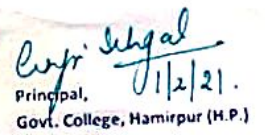 1/2/21.
Principal,
Govt. College, Hamirpur (H.P.)